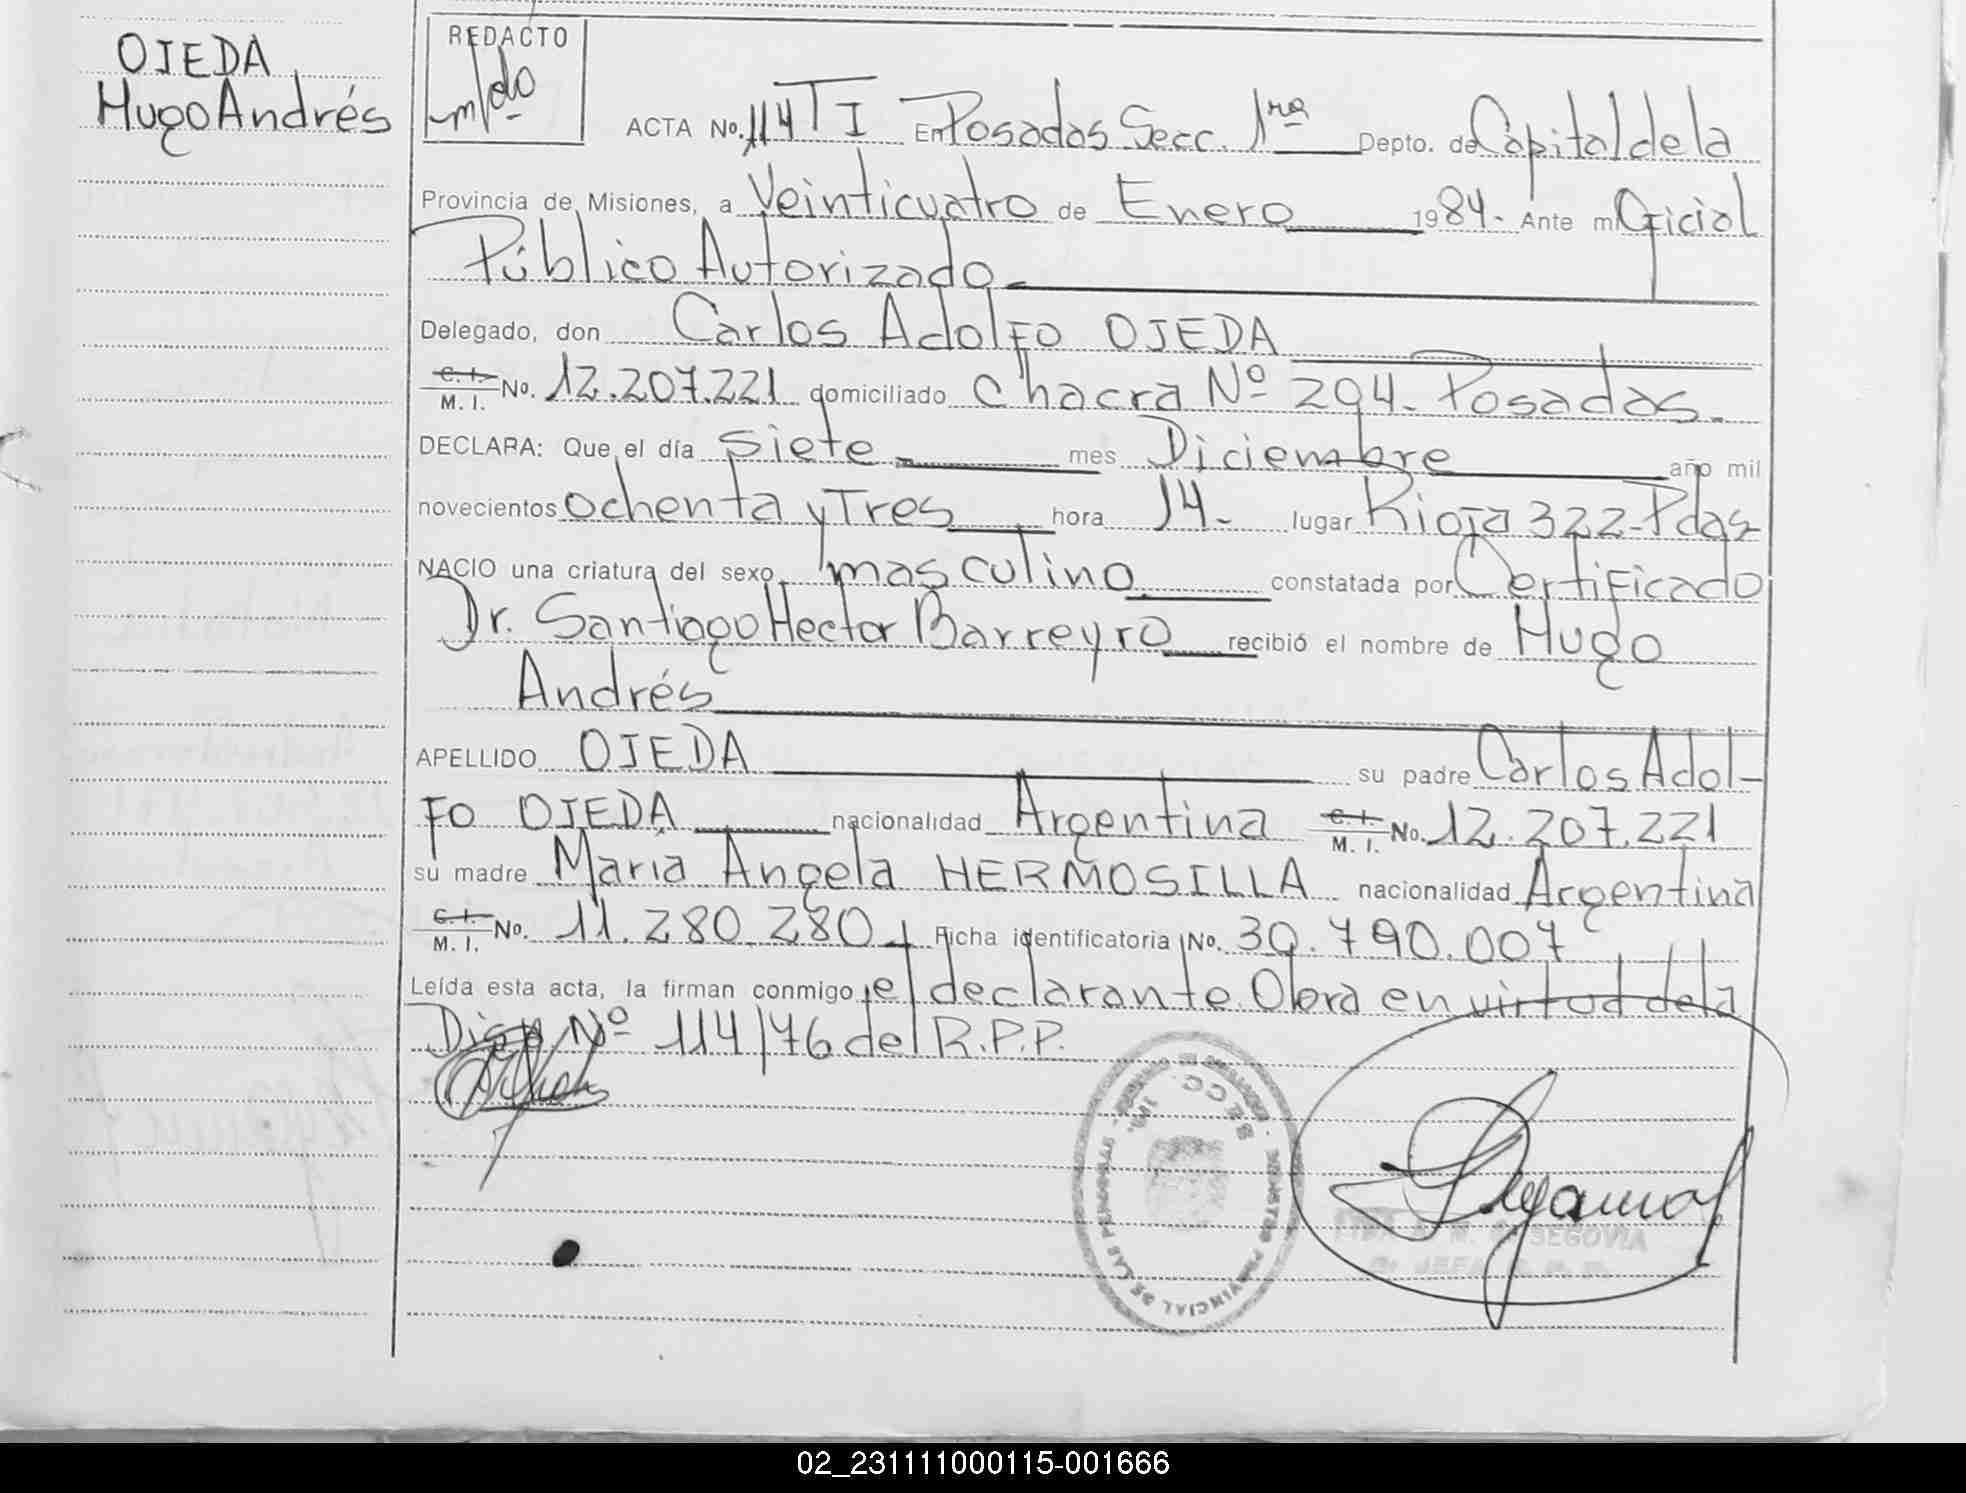 OJEDA
Hugo Andrés
REDACTO
ACTA No. 114 T I En Posadas Secc. 1ra Depto. de Capital de la
Provincia de Misiones, a Veinticuatro de Enero 1984.- Ante mi Oficial
Público Autorizado.-
Delegado, don Carlos Adolfo OJEDA
C. I. M. I. No. 12.207.221 domiciliado chacra Nº 294- Posadas.-
DECLARA: Que el día siete.- mes Diciembre año mil
novecientos ochenta y Tres hora 14.- lugar Rioja 322-Pdas-
NACIO una criatura del sexo masculino constatada por Certificado
Dr. Santiago Hector Barreyro recibió el nombre de Hugo
Andrés
APELLIDO OJEDA su padre Carlos Adol-
fo OJEDA nacionalidad Argentina C. I. M. I. No. 12.207.221
su madre María Angela HERMOSILLA nacionalidad Argentina
C. I. M. I. No. 11.280.280 Ficha identificatoria No. 30.790.007
Leída esta acta, la firman conmigo el declarante. Obra en virtud de la
Disp. Nº 114/76 del R.P.P.
SECC. 1ra.
REGISTRO PROVINCIAL DE LAS PERSONAS
SEGOVIA
02_231111000115-001666